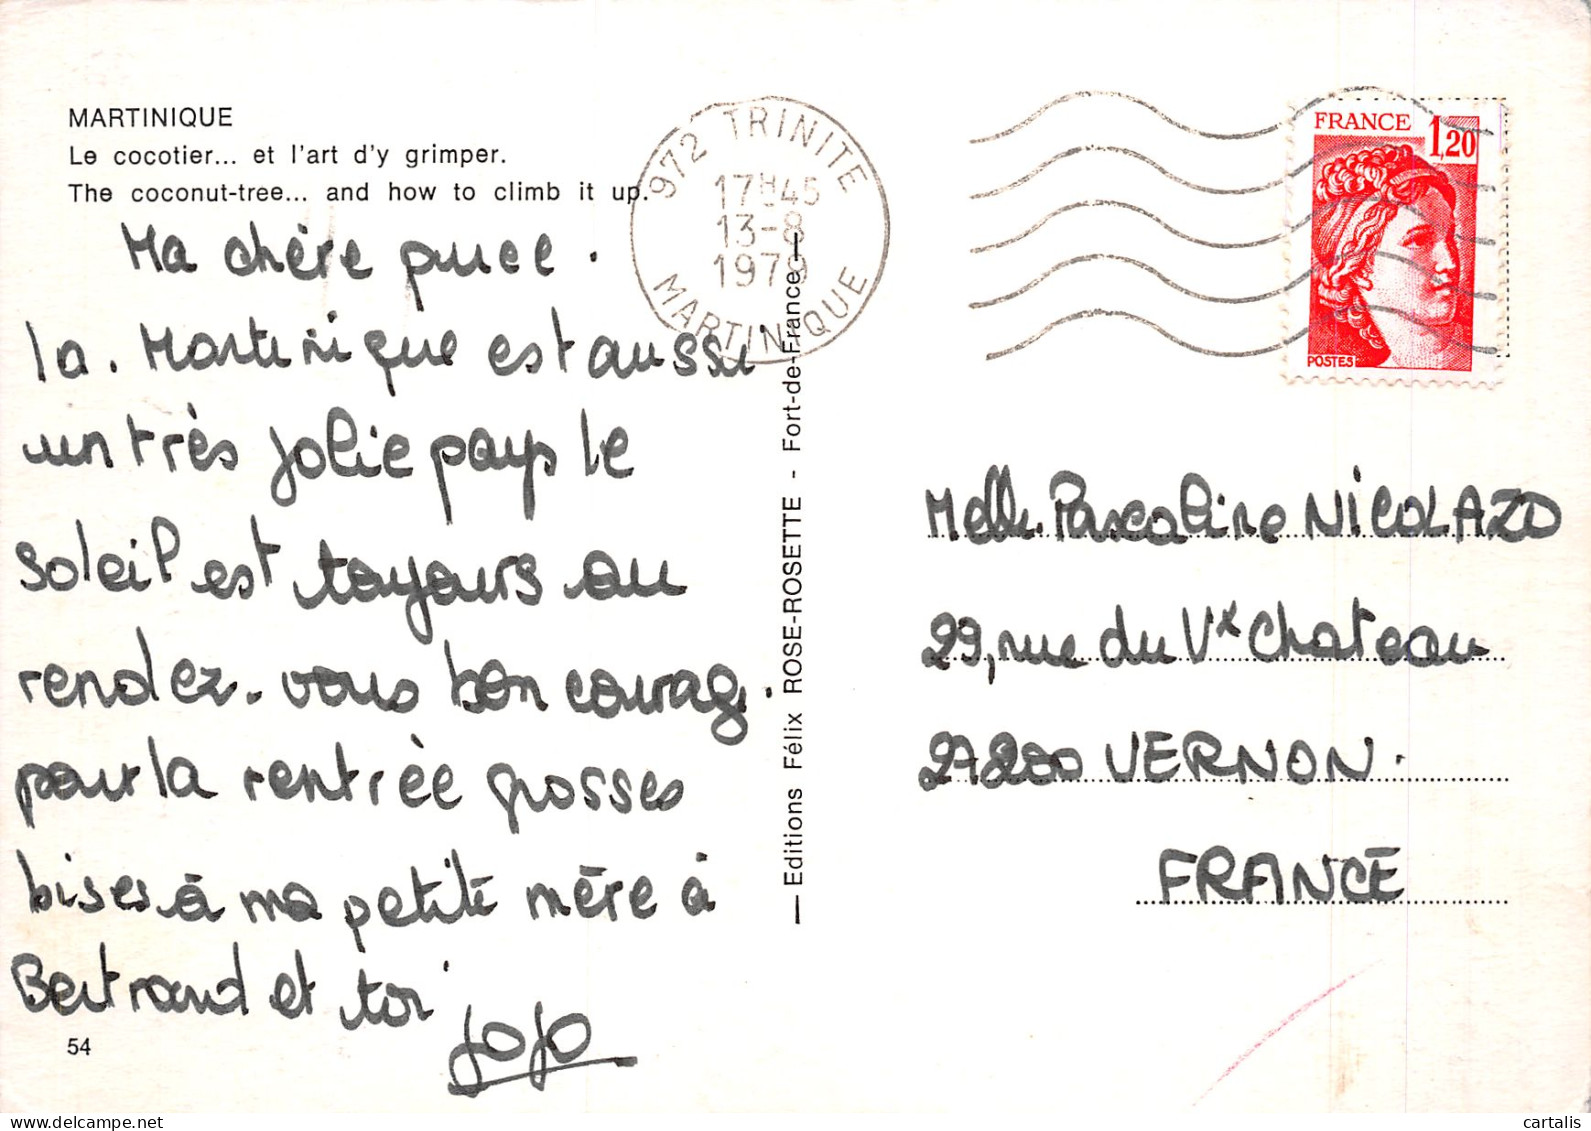 MARTINIQUE
Le cocotier... et l'art d'y grimper.
The coconut-tree... and how to climb it up.
Ma chère puce.
la. Martinique est aussi
un très jolie pays le
soleil est toujours au
rendez-vous bon courag.
pour la rentrée grosses
bises à ma petite mère à
Bertrand et toi
JoJo
54
Editions Félix ROSE-ROSETTE - Fort-de-France
972 TRINITE
17H45
13-8
1979
MARTINIQUE
FRANCE
1,20
POSTES
Melle. Pascaline NICOLAZO
29, rue du Vx Chateau
27200 VERNON.
FRANCE
cartalis